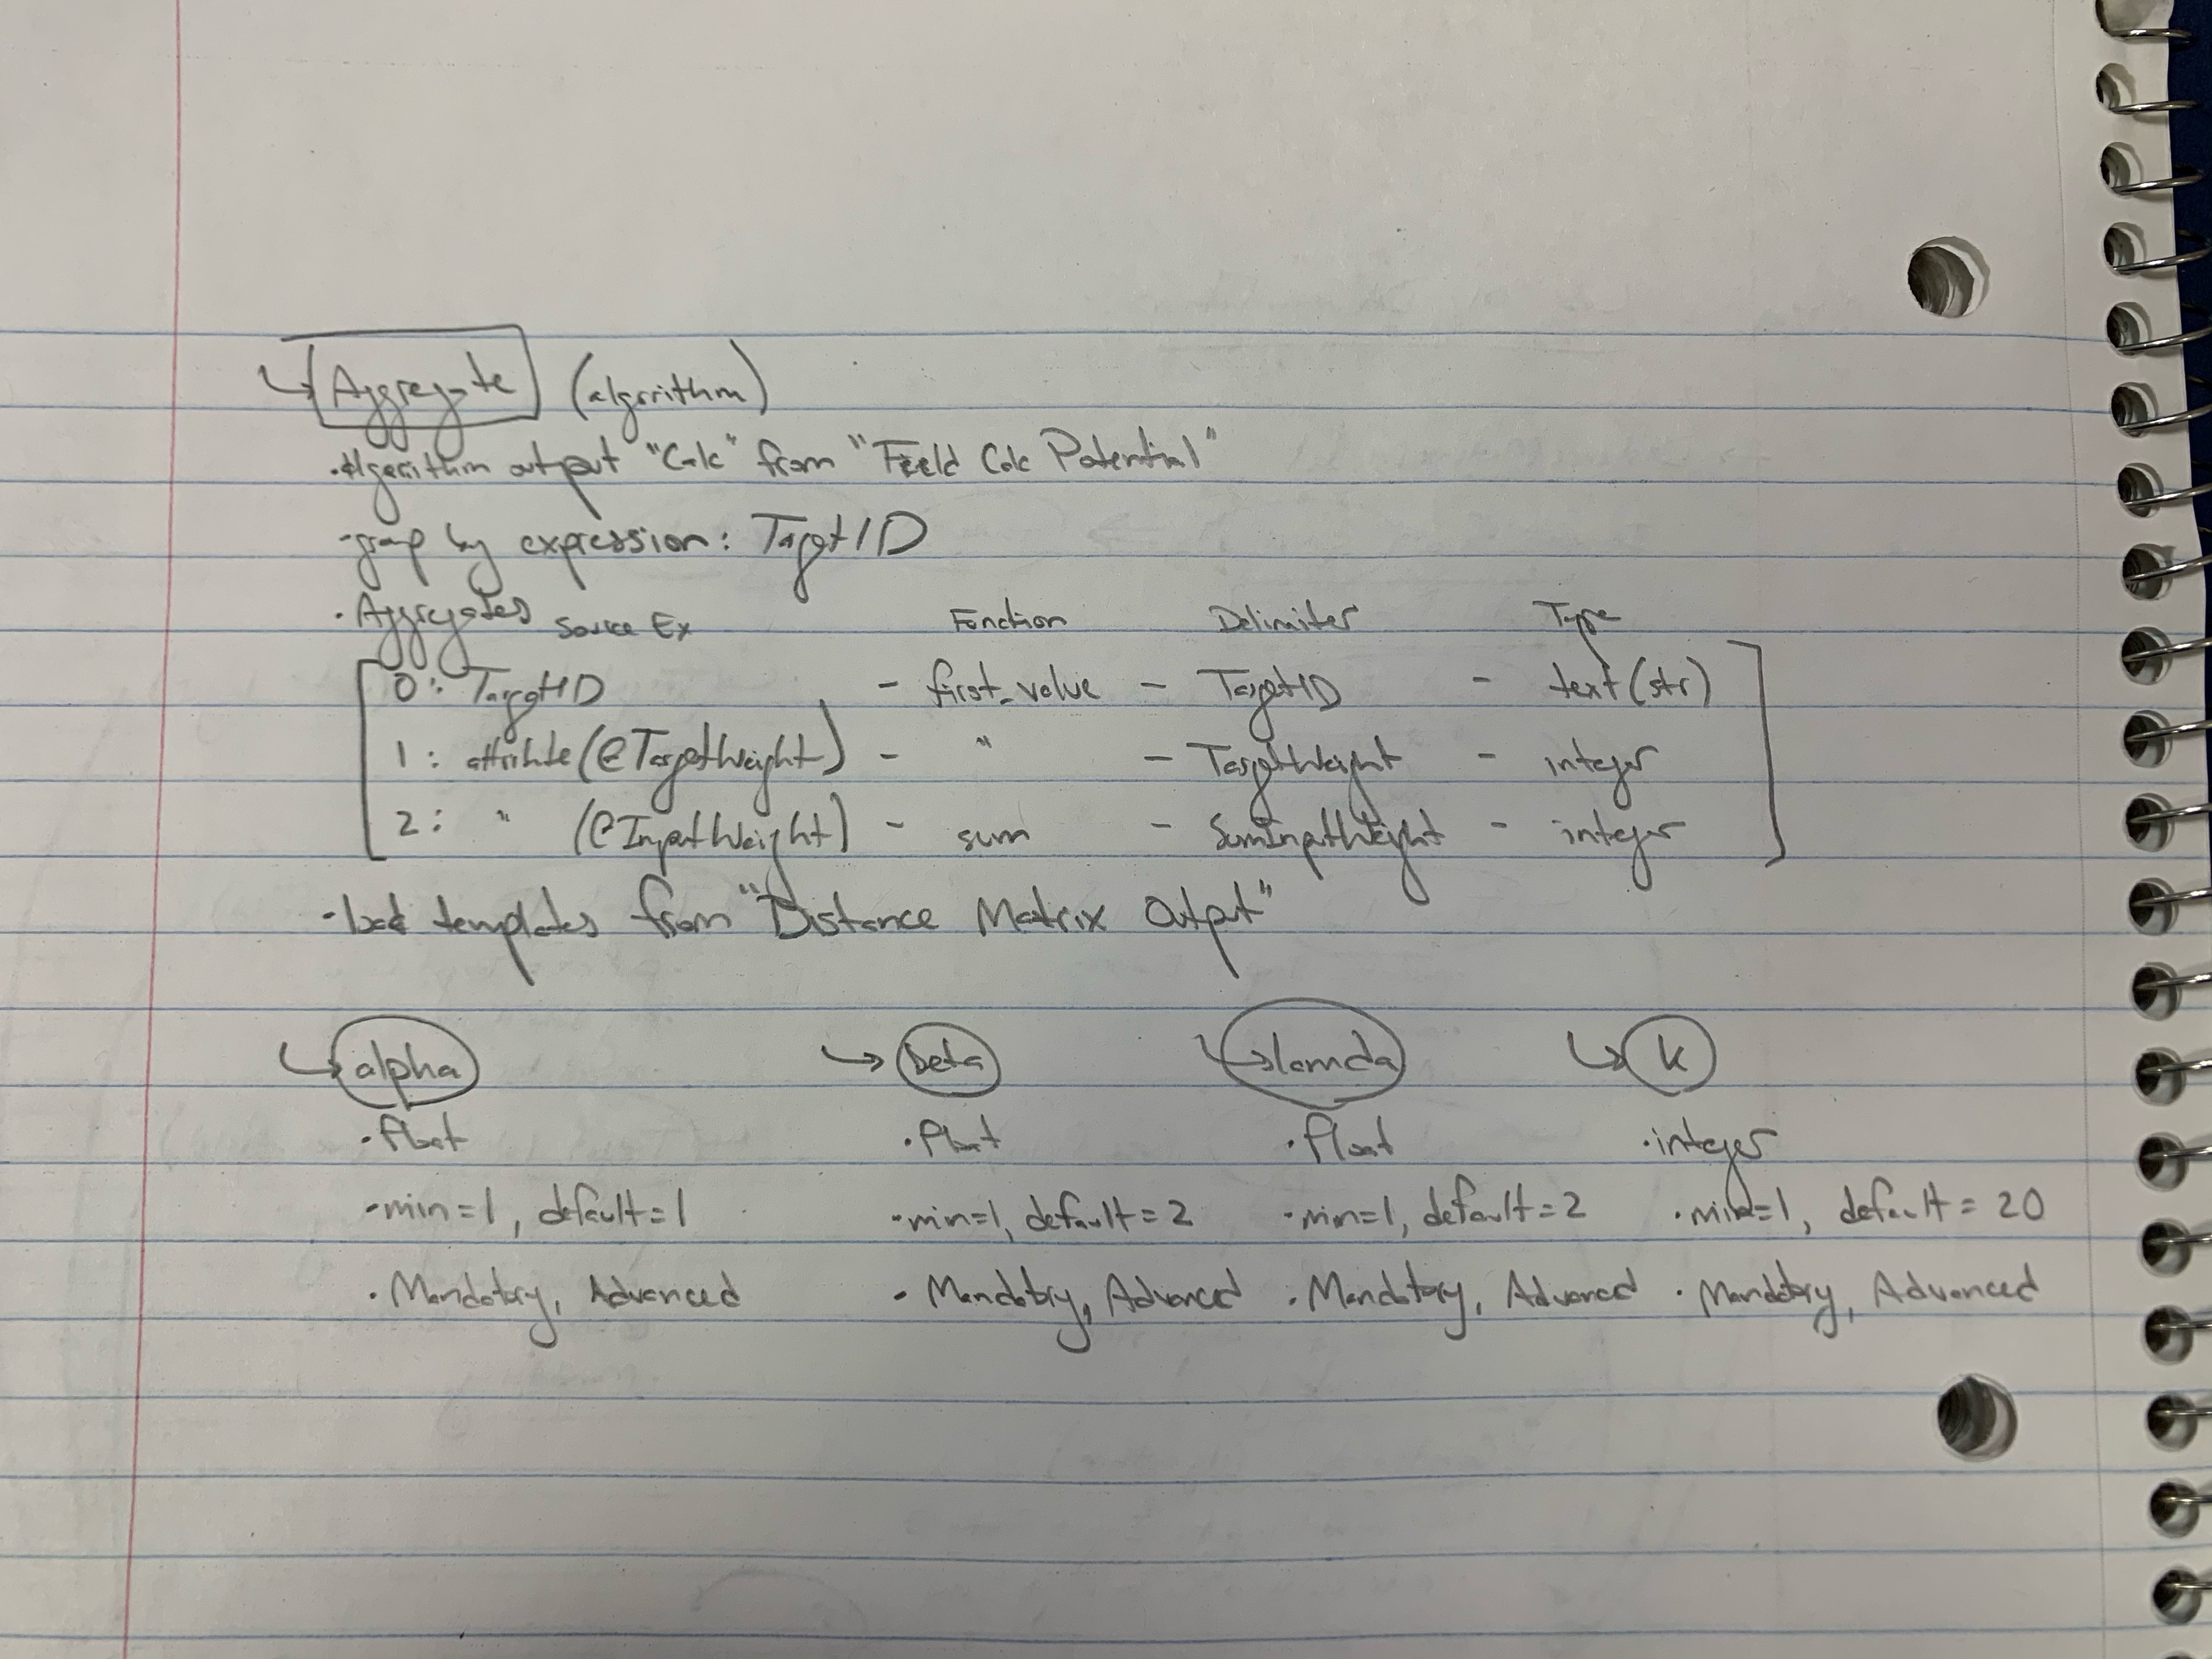 ↳ Aggregate (algorithm)
·Algorithm output "Calc" from "Field Calc Potential"
·group by expression: TargetID
·Aggregates Source Ex Function Delimiter Type
0: TargetID - first_value - TargetID - text(str)
1: attribute(@TargetWeight) - " - TargetWeight - integer
2: " (@InputWeight) - sum - SumInputWeight - integer
·load templates from "Distance Matrix Output"
↳ alpha ↳ beta ↳ lamda ↳ k
·float ·float ·float ·integer
·min=1, default=1 ·min=1, default=2 ·min=1, default=2 ·min=1, default=20
·Mandatory, Advanced ·Mandatory, Advanced ·Mandatory, Advanced ·Mandatory, Advanced